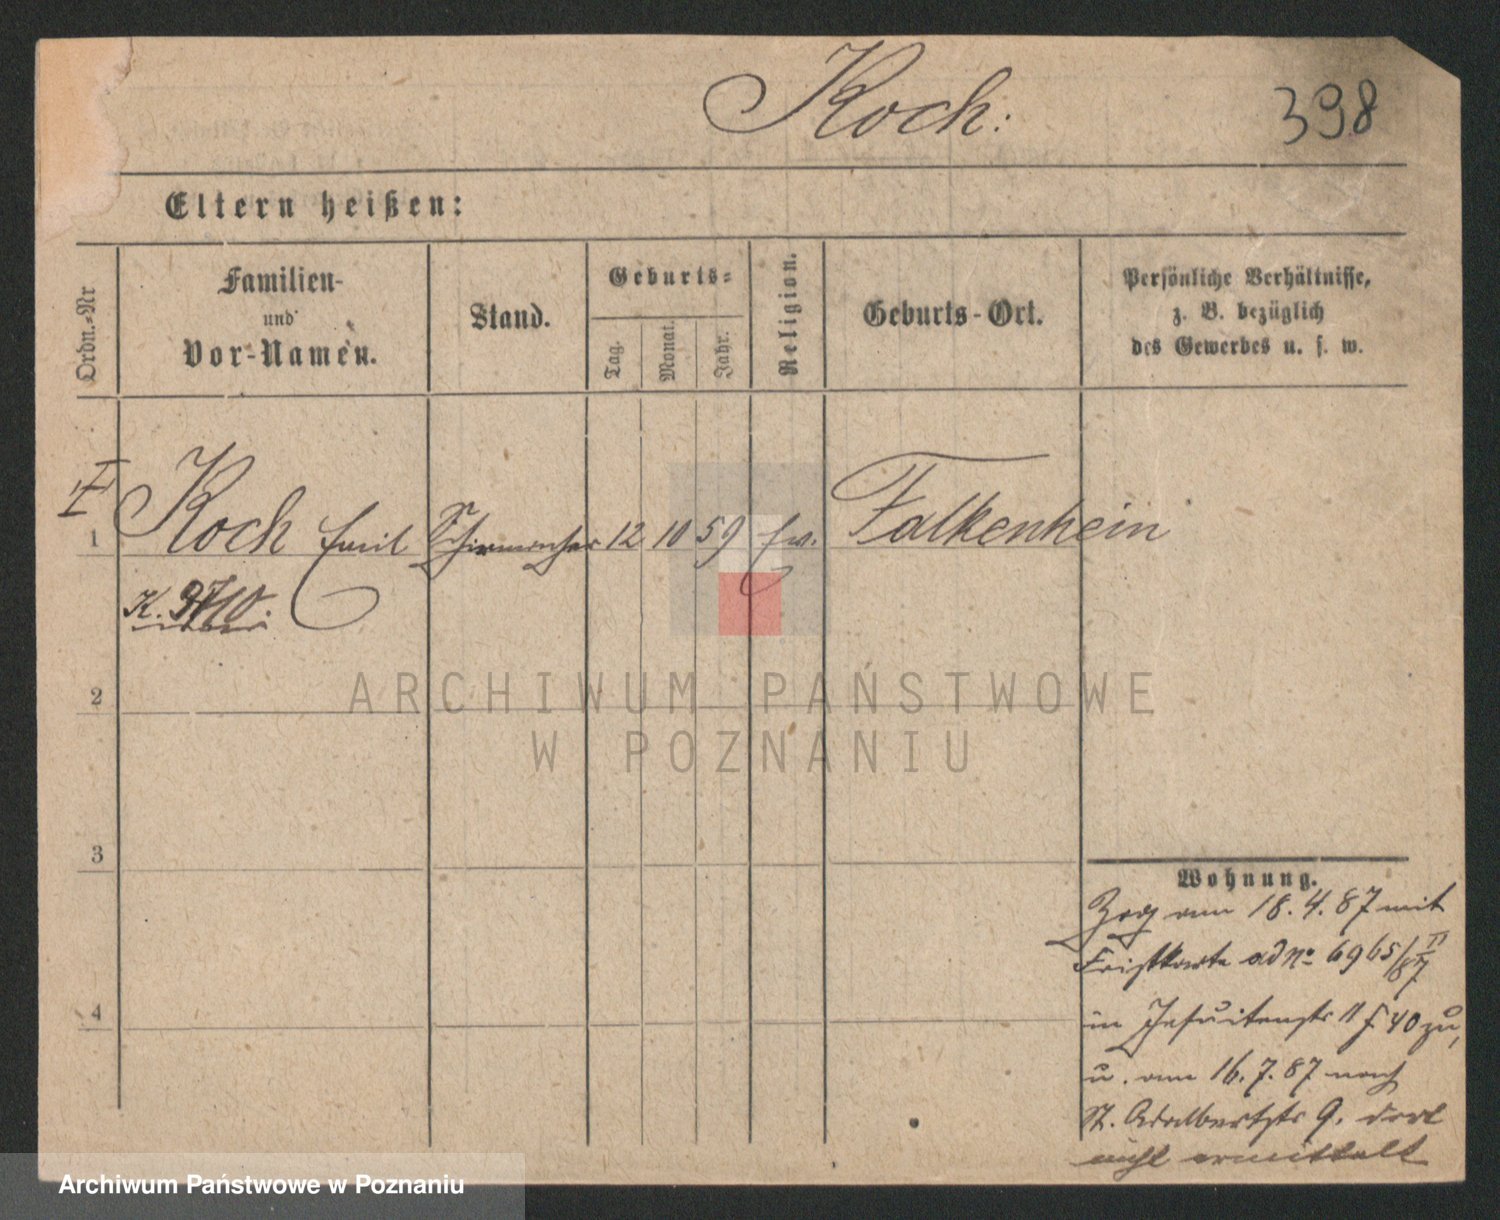 Koch:
398
Eltern heißen:
Ordn.-Nr
Familien-
und
Vor-Namen.
Stand.
Geburts-
Tag.
Monat.
Jahr.
Religion.
Geburts-Ort.
Persönliche Verhältnisse,
z. B. bezüglich
des Gewerbes u. s. w.
1 Koch Emil Schirmmacher 12 10 59 Ev. Falkenhein
K.
2
ARCHIWUM PAŃSTWOWE
W POZNANIU
3
4
Wohnung.
Zog am 18. 4. 87 mit
Fristkarte ad No 6965/II 87
in Jesuitenstr 11 f 40 zu,
u. am 16. 7. 87 nach
St. Adalbertstr 9. dort
nicht ermittelt
Archiwum Państwowe w Poznaniu